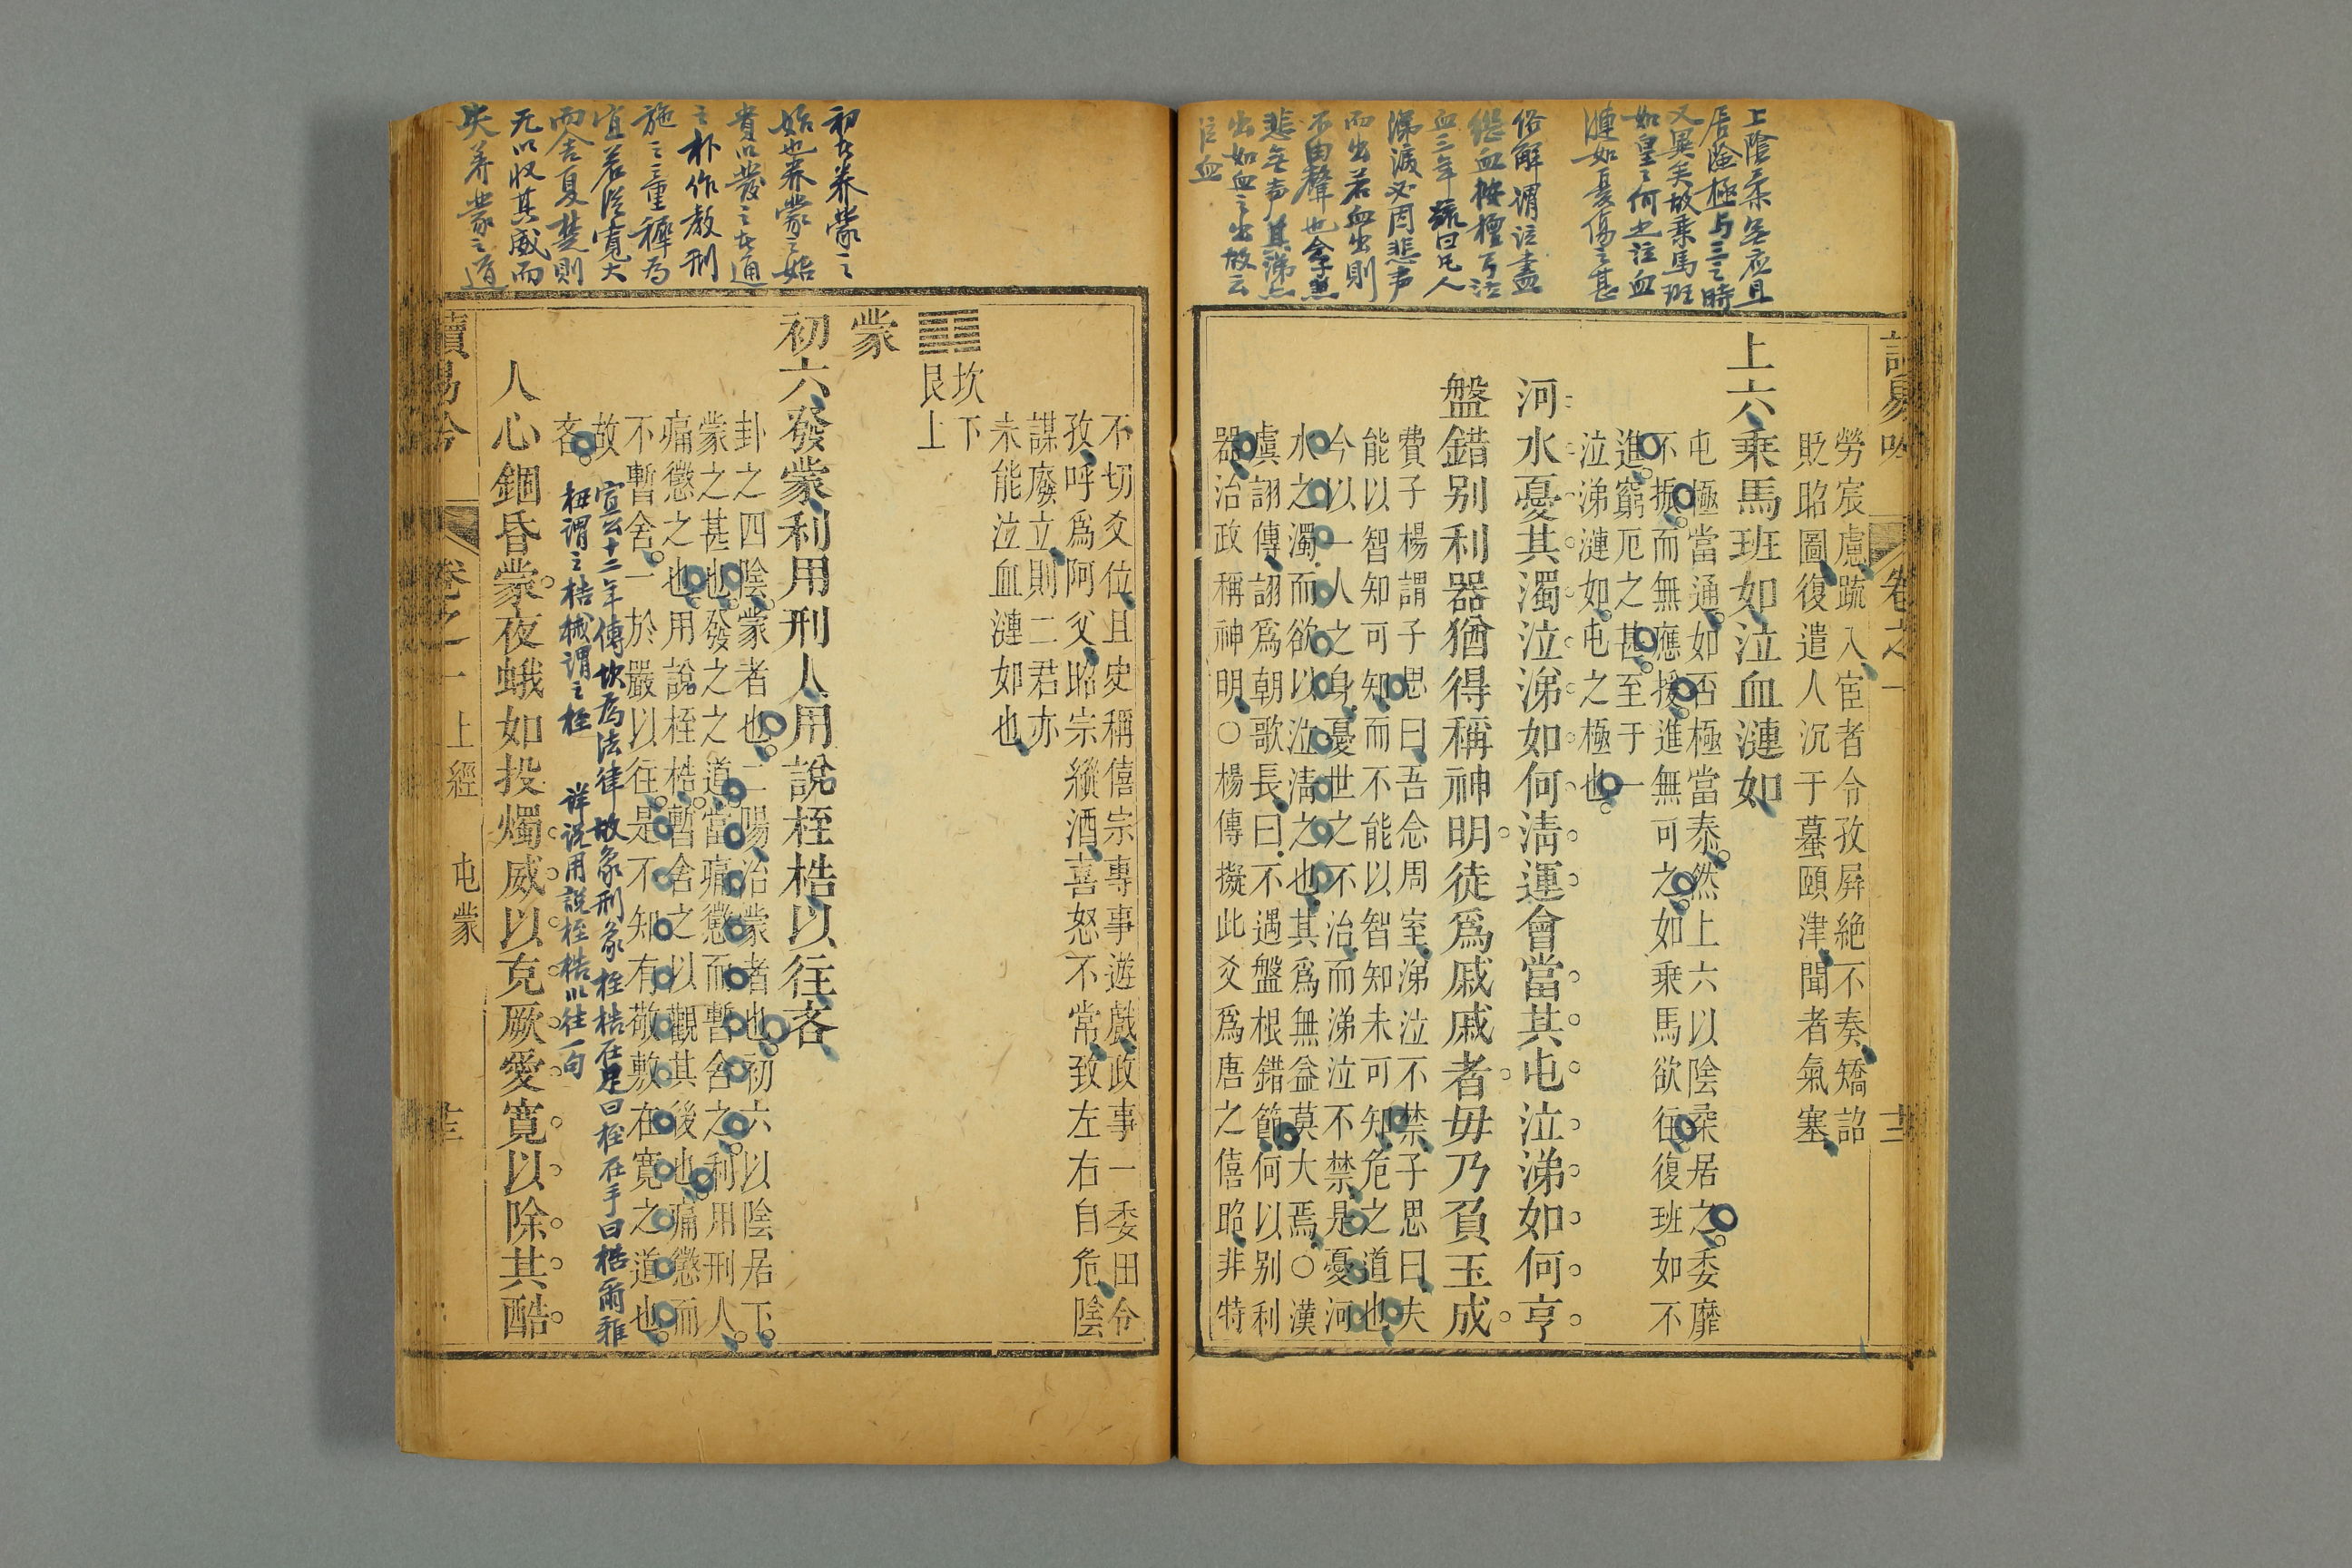 上陰柔無應且
居險極与三之時
又異矣故乗馬班
如皇〻何也泣血
漣如憂傷之甚
俗解謂泣盡
繼血按檀弓泣
血三年疏曰凡人
涕淚必因悲声
而出若血出則
不由聲也今子羔
悲無声其涕亦
出如血之出故云
泣血
讀易吟 卷之一 十二
勞宸慮䟽入宦者令孜屏絶不奏矯詔
貶昭圖復遣人沉于蟇頤津聞者氣塞
上六乗馬班如泣血漣如
屯極當通如否極當泰然上六以陰柔居之委靡
不振而無應援進無可之如乗馬欲往復班如不
進窮厄之甚至于一
泣涕漣如屯之極也
河水憂其濁泣涕如何淸運會當其屯泣涕如何亨
盤錯别利器猶得稱神明徒爲戚戚者毋乃負玉成
費子楊謂子思曰吾念周室涕泣不禁子思曰夫
能以智知可知而不能以智知未可知危之道也
今以一人之身憂世之不治而涕泣不禁是憂河
水之濁而欲以泣淸之也其爲無益莫大焉○漢
虞詡傳詡爲朝歌長曰不遇盤根錯節何以别利
器治政稱神明○楊傳擬此爻爲唐之僖昭非特
初在養蒙之
始也养蒙之始
貴以發之在通
之朴作教刑
施之童穉為
宜若從寛大
而舍夏楚則
无以收其威而
失养蒙之道
不切爻位且史稱僖宗專事遊戲政事一委田令
孜呼爲阿父昭宗縱酒喜怒不常致左右自危陰
謀廢立則二君亦
未能泣血漣如也
坎下
艮上
蒙
初六發蒙利用刑人用說桎梏以往吝
卦之四陰蒙者也二陽治蒙者也初六以陰居下
蒙之甚也發之之道當痛懲而暫舍之利用刑人
痛懲之也用說桎梏暫舍之以觀其後也痛懲而
不暫舍一於嚴以往是不知有敬敷在寛之道也
故
吝
宣公十二年傳坎為法律故象刑象桎梏在足曰桎在手曰梏爾雅
杻謂之梏械謂之桎 详说用説桎梏以往一句
人心錮昏蒙夜蛾如投燭威以克厥愛寛以除其酷
讀易吟 卷之一 上經 屯蒙 十三